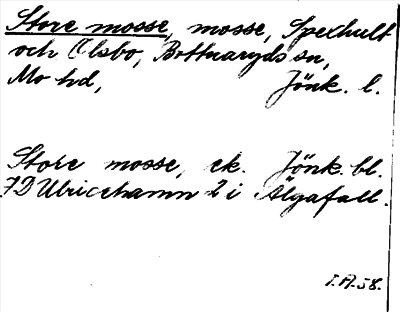 Store mosse, mosse, Spexhult
och Olsbo, Bottnaryds sn,
Mo hd, Jönk. l.
Store mosse, ek. Jönk. bl.
7D Ulricehamn 2 i Älgafall.
I.A.58.